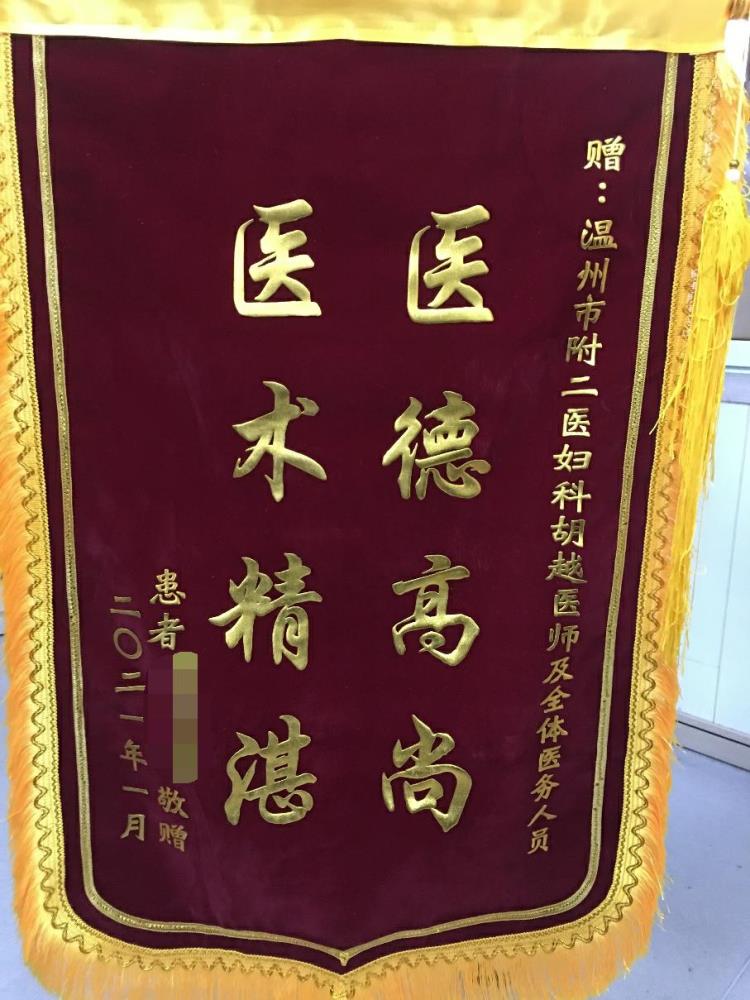 赠：温州市附二医妇科胡越医师及全体医务人员
医德高尚
医术精湛
患者 敬赠
二〇二一年一月